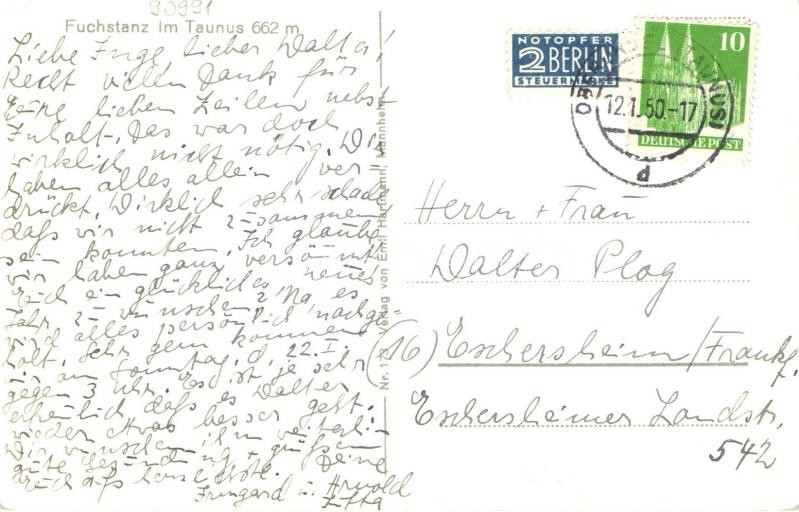 90991
Fuchstanz im Taunus 662 m
Liebe Inge, lieber Walter!
Recht vielen Dank für
Eure lieben Zeilen nebst
Inhalt. Das war doch
wirklich nicht nötig. Wir
haben alles allein ver=
drückt. Wirklich sehr schade
daß wir nicht zusammen
sein konnten. Ich glaube
wir haben ganz versäumt
Euch ein glückliches neues
Jahr zu wünschen? Na, es
wird alles persönlich nachge=
holt. Sehr gern kommen
wir am Sonntag, d. 22.I.
gegen 3 Uhr. Es ist ja sehr
erfreulich daß es Walter
wieder etwas besser geht.
Wir wünschen ihm weiterhin
gute Gesundung + grüßen
Euch aufs herzlichste. Deine
Irmgard u. Arnold
Jutta
Nr. 173 Verlag von Emil Hartmann, Mannheim
NOTOPFER
2 BERLIN
STEUERMARKE
10
DEUTSCHE POST
TAUNUS)
12.1.50.-17
d
Herrn + Frau
Walter Plog
(16) Eschersheim/Frankf.
Eschersheimer Landstr.
542